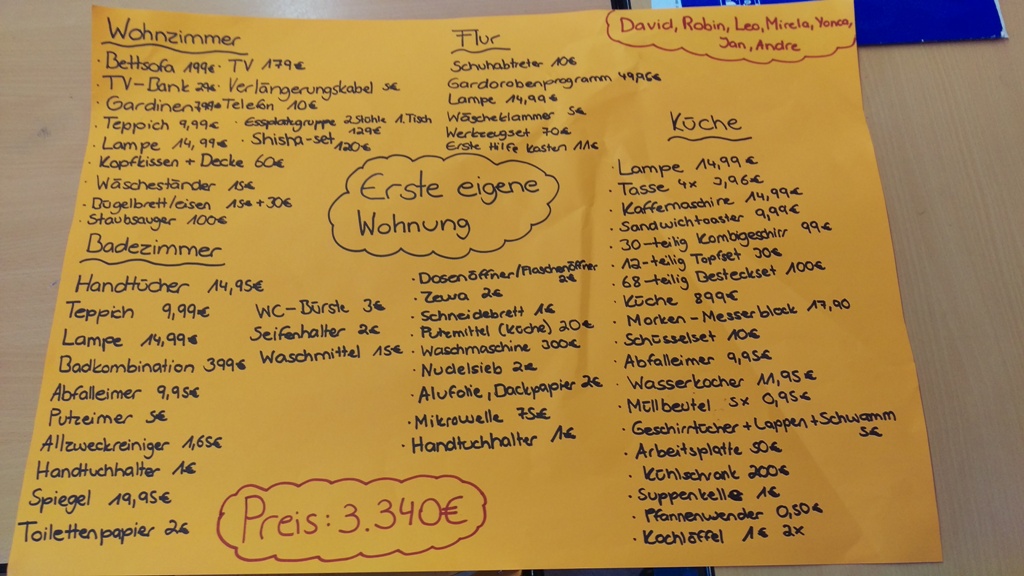 David, Robin, Leo, Mirela, Yonca,
Jan, Andre
Wohnzimmer
· Bettsofa 199€ · TV 179€
· TV-Bank · Verlängerungskabel 5€
· Gardinen · Telefon 10€
· Teppich 9,99€ · Essplatzgruppe 2 Stühle 1. Tisch
129€
· Lampe 14,99€ · Shisha-set 120€
· Kopfkissen + Decke 60€
· Wäscheständer 15€
· Bügelbrett/eisen 15€ + 30€
· Staubsauger 100€
Flur
Schuhabtreter 10€
Gardorobenprogramm 49,95€
Lampe 14,99€
Wäscheklammer 5€
Werkzeugset 70€
Erste Hilfe Kasten 11€
Erste eigene
Wohnung
Badezimmer
Handtücher 14,95€
Teppich 9,99€
Lampe 14,99€
Badkombination 399€
Abfalleimer 9,95€
Putzeimer 5€
Allzweckreiniger 1,65€
Handtuchhalter 1€
Spiegel 19,95€
Toilettenpapier 2€
WC-Bürste 3€
Seifenhalter 2€
Waschmittel 15€
Küche
· Lampe 14,99€
· Tasse 4x 3,96€
· Kaffemaschine 14,99€
· Sandwichtoaster 9,99€
· 30-teilig Kombigeschirr 99€
· 12-teilig Topfset 30€
· 68-teilig Besteckset 100€
· Küche 899€
· Marken-Messerblock 17,90
· Schüsselset 10€
· Abfalleimer 9,95€
· Wasserkocher 11,95€
· Müllbeutel 5x 0,95€
· Geschirrtücher + Lappen + Schwamm
5€
· Arbeitsplatte 50€
· Kühlschrank 200€
· Suppenkelle 1€
· Pfannenwender 0,50€
· Kochlöffel 1€ 2x
· Dosenöffner/Flaschenöffner
2€
· Zewa 2€
· Schneidebrett 1€
· Putzmittel (Küche) 20€
· Waschmaschine 300€
· Nudelsieb 2€
· Alufolie, Backpapier 2€
· Mikrowelle 75€
· Handtuchhalter 1€
Preis: 3.340€